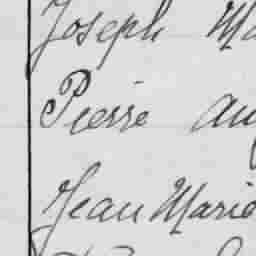 Joseph Ma
Pierre Au
Jean Marie